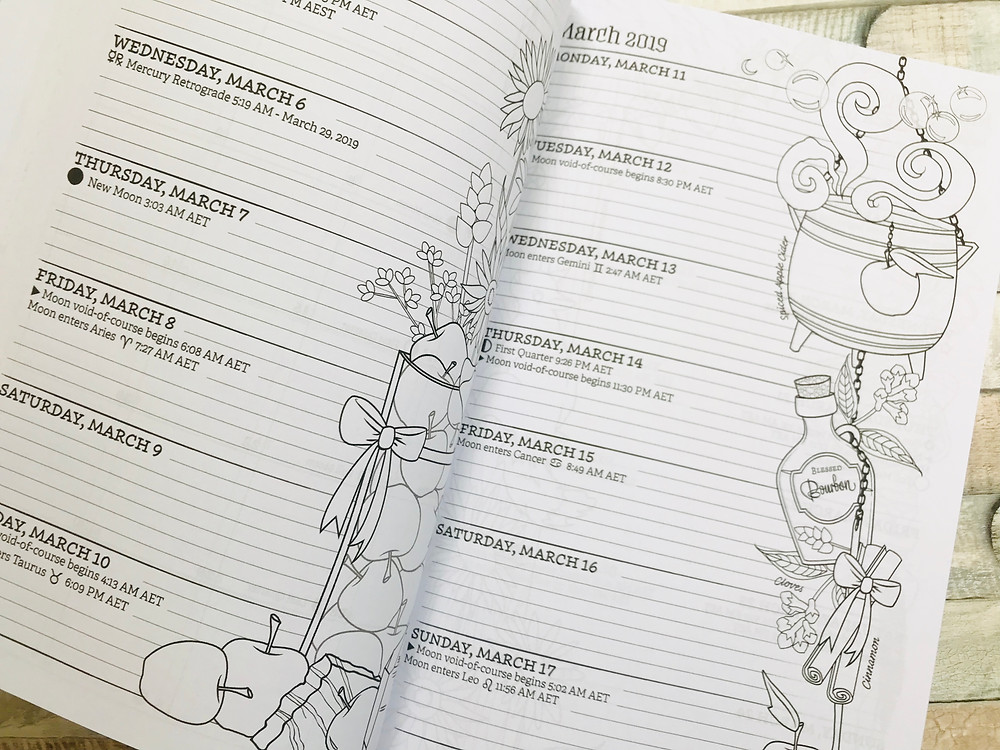 PM AET
PM AEST
WEDNESDAY, MARCH 6
☿℞ Mercury Retrograde 5:19 AM - March 29, 2019
THURSDAY, MARCH 7
New Moon 3:03 AM AET
FRIDAY, MARCH 8
▶ Moon void-of-course begins 6:08 AM AET
Moon enters Aries ♈ 7:27 AM AET
SATURDAY, MARCH 9
DAY, MARCH 10
void-of-course begins 4:13 AM AET
ers Taurus ♉ 6:09 PM AET
March 2019
MONDAY, MARCH 11
TUESDAY, MARCH 12
Moon void-of-course begins 8:30 PM AET
WEDNESDAY, MARCH 13
Moon enters Gemini ♊ 2:47 AM AET
THURSDAY, MARCH 14
First Quarter 9:26 PM AET
▶ Moon void-of-course begins 11:30 PM AET
FRIDAY, MARCH 15
Moon enters Cancer ♋ 8:49 AM AET
SATURDAY, MARCH 16
SUNDAY, MARCH 17
▶ Moon void-of-course begins 5:02 AM AET
Moon enters Leo ♌ 11:56 AM AET
Spiced Apple Cider
BLESSED
Bourbon
Cloves
Cinnamon